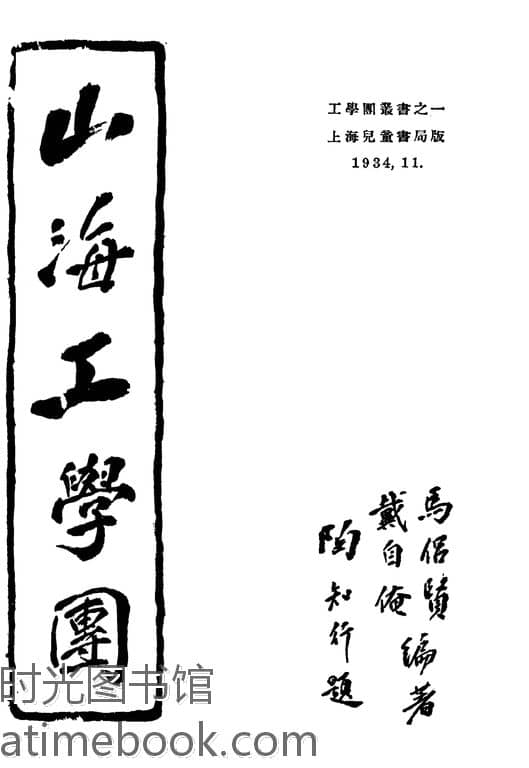 山海工學團
工學團叢書之一
上海兒童書局版
1934, 11.
馬侶賢
戴自俺
編著
陶知行題
时光图书馆
atimebook.com